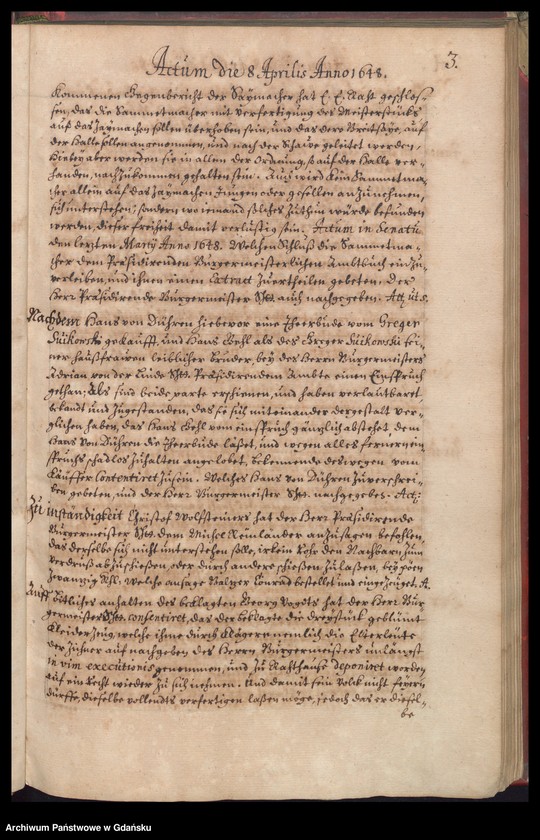 3.
Actum die 8 Aprilis Anno 1648.
kommenen Gegenbericht der Saymacher hat E. E. Raht geschlos-
sen, das die Sammetmacher mit verfertigung des Meisterstücks
auf das Zaymachen sollen überhoben sein, und das dero auf
der Halle sollen angenommen, und nach der geleitet werden,
Hiebey aber werden sie in allem der Ordnung, so auf der Halle ver-
handen, nachzukommen gehalten sein. Auch wird kein Sammetma-
cher allein auf das Zaymachen Jungen oder gesellen anzunehmen,
sich unterstehen; sondern wo iemand solches zuthun würde befunden
werden, dieser freiheit damit verlustig sein. Actum in Senatu
den letzten Martij Anno 1648. Welchen Schluß die Sammetma-
cher dem Präsidirenden Bürgermeisterlichen Ambtbuch einzu-
verleiben, und ihnen einen Extract zuertheilen gebeten. Der
Herr Präsidirende Bürgermeister hatt auch nachgegeben. Act. ut s.
Nachdem Hans von Dühren hiebevor eine Theerbude vom Greger
Suikowski gekaufft, und Hans Gehl als des Greger Suikowski sei-
ner haußfrawen leiblicher bruder, bey des Herrn Bürgermeisters
Adrian von der Linde Präsidirendem Ambte einen Einspruch
gethan; Als sind beide parte erschienen, und haben verlautbaret,
bekandt und zugestanden, das sie sich mit einander dergestalt ver-
glichen haben, das Hans Gehl vom einspruch gäntzlich abstehet, dem
Hans von Dühren die Theerbude läßet, und wegen alles fernern ein-
spruchs schadlos zuhalten angelobet, bekennende deswegen vom
Käuffer Contentiret zusein. Welches Hans von Dühren zuverschrei-
ben gebeten, und der Herr Bürgermeister nachgegeben. Act.
Zu inständigkeit Christof Wolffsteiners hat der Herr Präsidirende
Bürgermeister dem Michel Reinländer anzusagen befohlen,
das derselbe sich nicht unterstehen solle, irkein Rohr dem Nachbaren zum
verdruß abzuschießen, oder durch andere schießen zulaßen, bey pöen
Zwantzig Rthl. Welche ansage Baltzer Conrad bestellet und eingezeuget. A.
Auff bitliches anhalten des beklagten Georg Vogets hat der Herr Bür-
germeister consentiret, das der beklagte die drey stück geblümt
Kleiderzeug, welche ihme durch Klägern nemlich die Elterleute
der Züchner auf nachgeben des Herrn Bürgermeisters unlängst
in vim executionis genommen, und zu Rahthause deponiret worden
auf ein Recht wieder zu sich nehmen. Und damit sein Volck nicht feyern
dürffe, dieselbe vollendts verfertigen laßen möge, jedoch das er diesel-
be
Archiwum Państwowe w Gdańsku